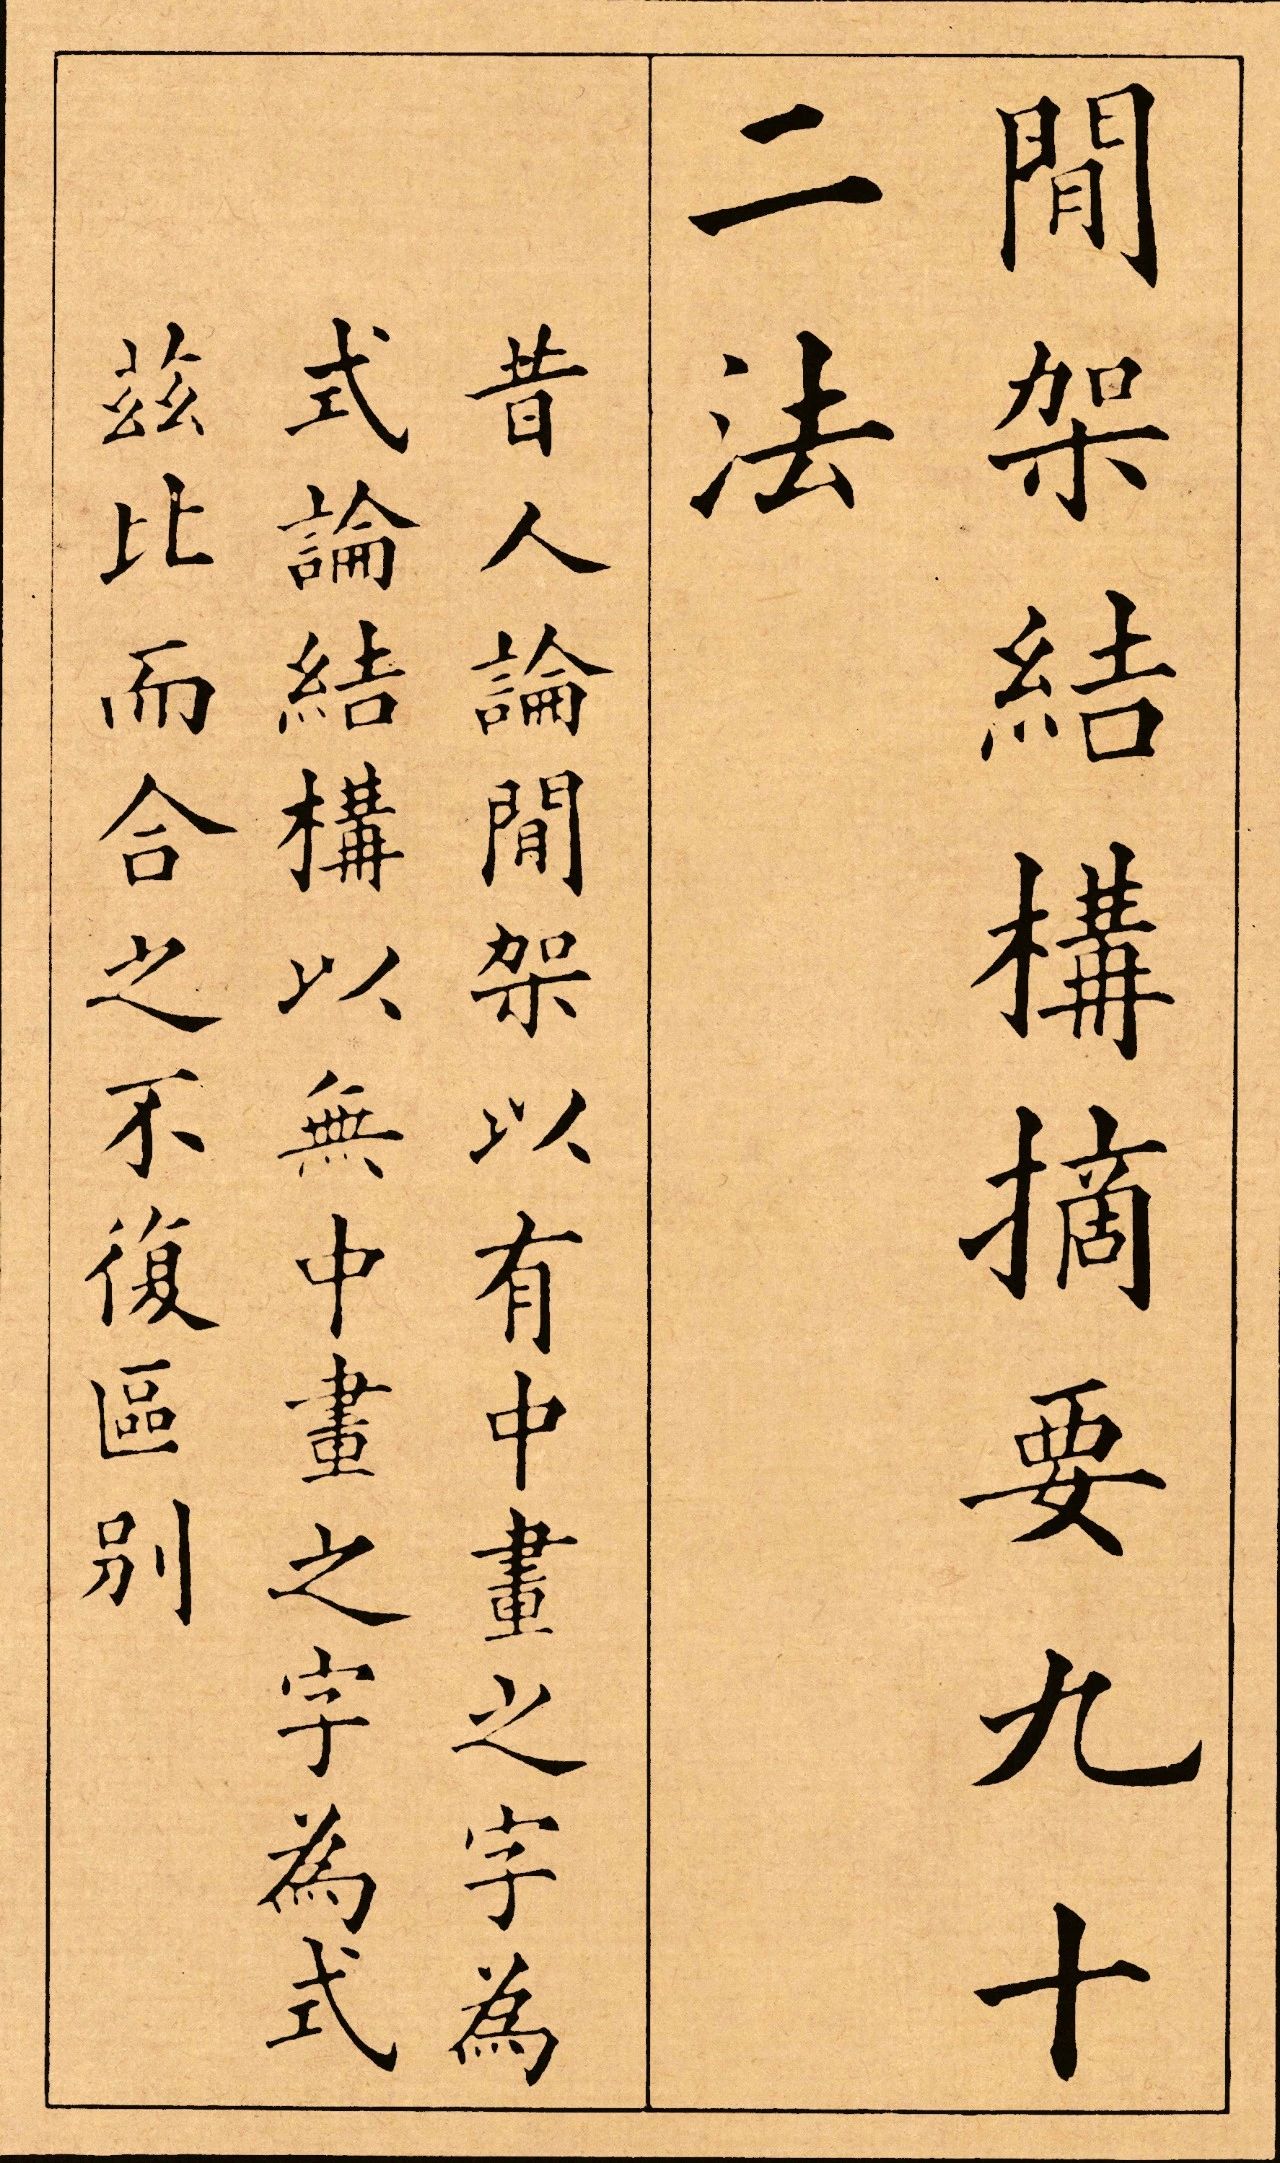 閒架結構摘要九十
二法
昔人論閒架以有中畫之字為
式論結構以無中畫之字為式
茲比而合之不復區別